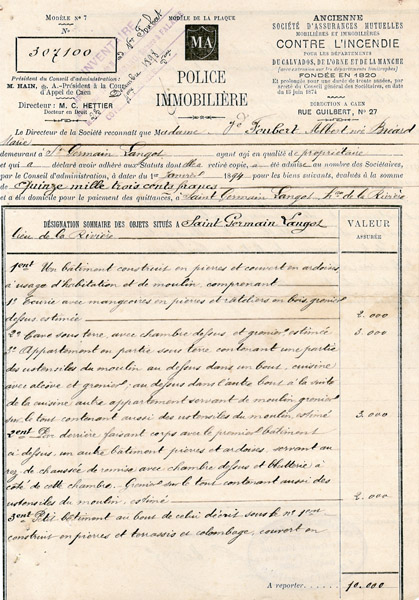 MODÈLE N° 7
N°
307100
Président du Conseil d'administration :
M. HAIN, A. -Président à la Cour
d'Appel de Caen
Directeur : M. C. HETTIER
Docteur en Droit
MODÈLE DE LA PLAQUE
MA
POLICE
IMMOBILIÈRE
ANCIENNE
SOCIÉTÉ D'ASSURANCES MUTUELLES
MOBILIÈRES ET IMMOBILIÈRES
CONTRE L'INCENDIE
POUR LES DÉPARTEMENTS
DU CALVADOS, DE L'ORNE ET DE LA MANCHE
FONDÉE EN 1820
Et prolongée pour une durée de trente années, par
arrêté du Conseil général des Sociétaires, en
date du 15 juin 1874
DIRECTION A CAEN
RUE GUILBERT, N° 27
Le Directeur de la Société reconnaît que Madame Ve Foubert Albert née
Marie
demeurant à St Germain Langot agissant en qualité de propriétaire
et qui a déclaré avoir adhéré aux Statuts dont elle retiré copie, a été admise au nombre des Sociétaires,
par le Conseil d'administration, à dater du 1er Janvier 1894 pour les biens suivants, évalués à la somme
de Quinze mille trois cents francs
et a élu domicile pour le paiement des quittances, à Saint Germain Langot lieu de la Rivière
DÉSIGNATION SOMMAIRE DES OBJETS SITUÉS A Saint Germain Langot
lieu de la Rivière
VALEUR
ASSURÉE
1ent Un bâtiment construit en pierres et couvert en ardoises
à usage d'habitation et de moulin, comprenant
1° Ecurie avec mangeoires en pierres et rateliers en bois, grenier
dessus, estimée 2.000
2° Cave sous terre, avec chambre dessus et grenier estimée 3.000
3° Appartement en partie sous terre contenant une partie
des ustensiles du moulin au dessus dans un bout, cuisine
avec alcôve et grenier ; au dessus dans l'autre bout à la suite
de la cuisine autre appartement servant de moulin grenier
sur le tout contenant aussi des ustensiles du moulin, estimé 3.000
2ent Par derrière faisant corps avec le premier bâtiment
ci dessus, un autre bâtiment pierres et ardoises, servant au
rez de chaussée de remise avec chambre dessus et bluterie à
côté de cette chambre. Grenier sur le tout contenant aussi des
ustensiles de moulin, estimé 2.000
3ent Petit bâtiment au bout de celui décrit sous le n° 1ent
construit en pierres et terrassis et colombage, couvert en
A reporter 10.000